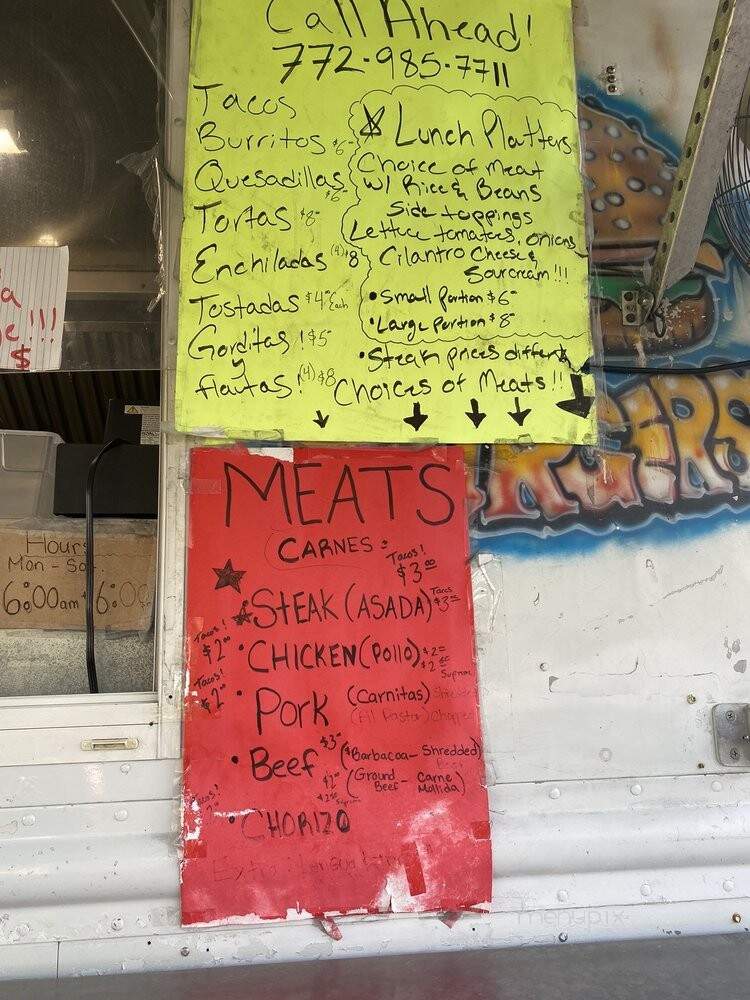 Call Ahead!
772-985-7711
Tacos
Burritos $6-
Quesadillas $6-
Tortas $8-
Enchiladas (4) $8
Tostadas $4- Each
Gorditas! $5-
y
flautas! (4) $8
☆ Lunch Platters
Choice of Meat
w/ Rice & Beans
Side toppings
Lettuce tomatoes, onions
Cilantro Cheese &
Sourcream!!!
• Small Portion $6-
• Large Portion $8-
• Steak prices differ
Choices of Meats!!
MEATS
CARNES =
Tacos!
$3.00
• STEAK (ASADA) Tacos $3
Tacos! $2.00
• CHICKEN (Pollo) $2
Suprem
Tacos! $2
• Pork (Carnitas) Shredded
(Al Pastor) Chopped
• Beef $3- (Barbacoa - Shredded)
Beef
$2 (Ground Beef - Carne Mollida)
• CHORIZO
Extra
Hours
Mon - Sat
6:00am 6:00
a
e!!!
$
ERS
menupix